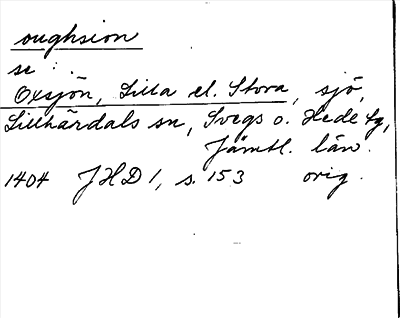 oughsion
se :
Oxsjön, Lilla el. Stora, sjö,
Lillhärdals sn, Svegs o. Hede tg,
Jämtl. län.
1404 JHD 1, s. 153 orig.